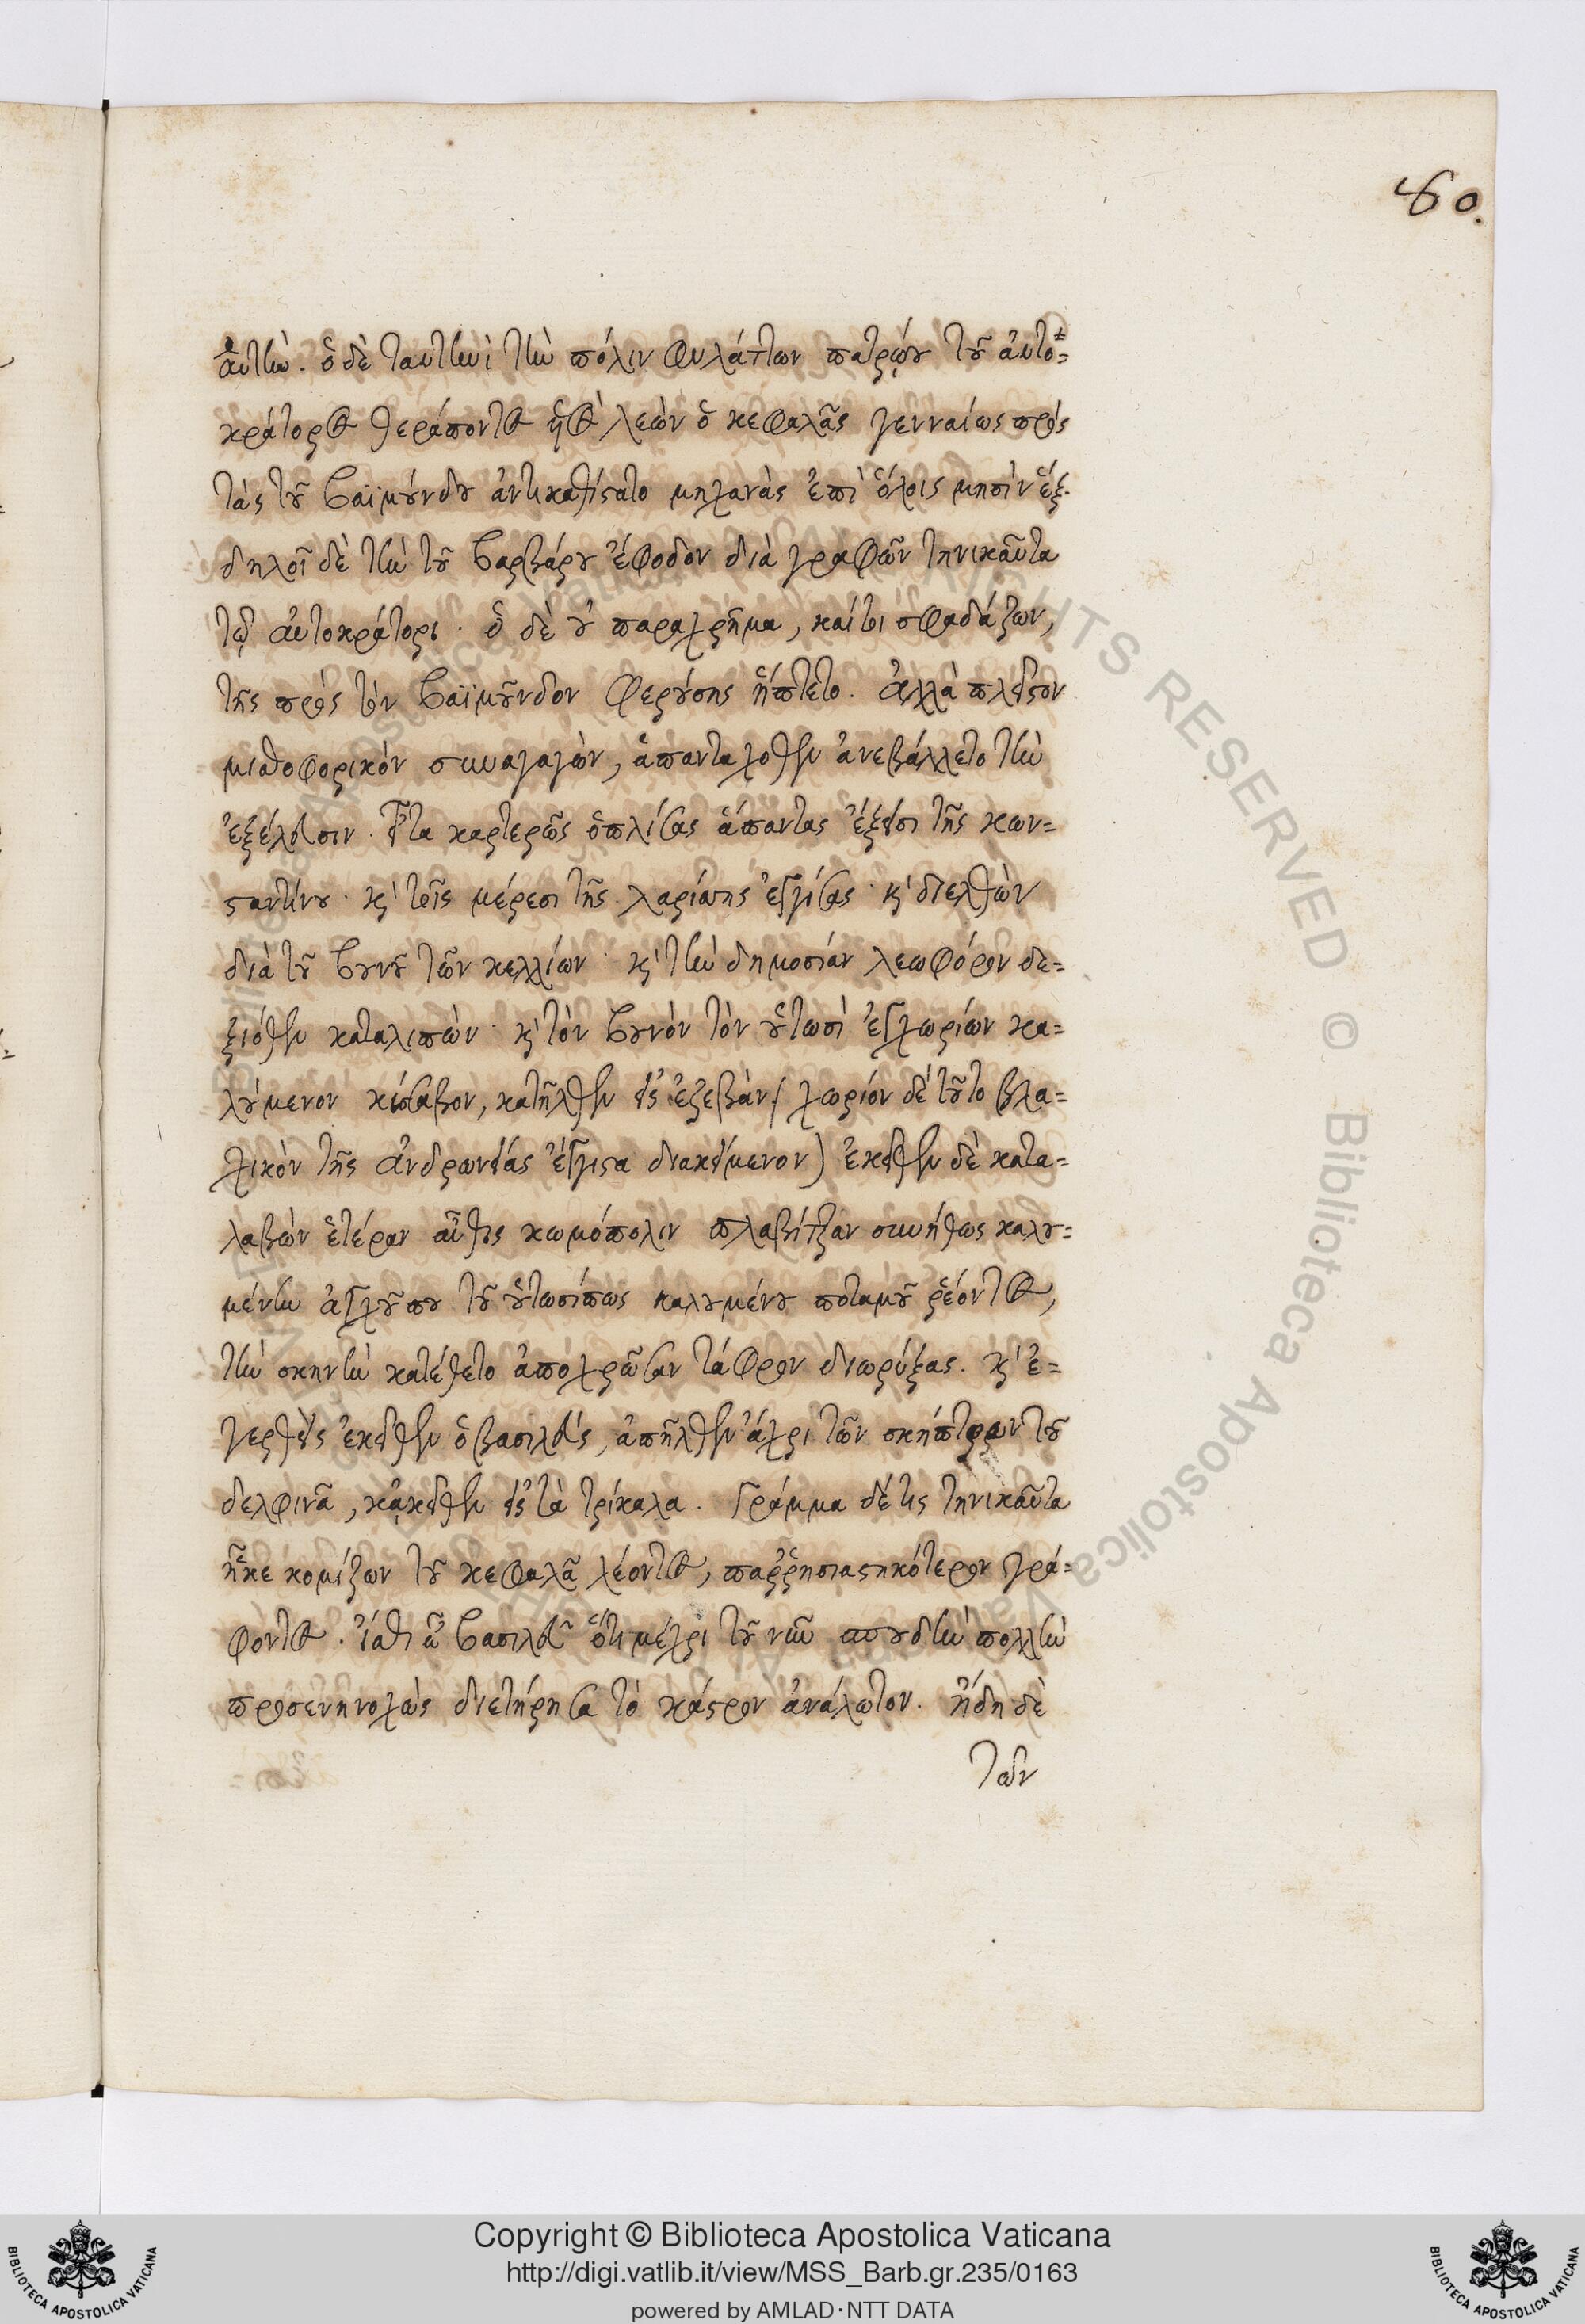 80.
αὐτὴν. ὁ δὲ ταυτηνὶ τὴν πόλιν φυλάττων πατρῴου τοῦ αὐτο=
κράτορος θεράποντος ἦος λεὼν ὁ κεφαλᾶς γενναίως πρὸς
τὰς τοῦ βαϊμούνδου ἀντικαθίστατο μηχανὰς ἐπὶ ὅλοις μησὶν ἕξ.
δηλοῖ δὲ τὴν τοῦ βαρβάρου ἔφοδον διὰ γραφῶν τηνικαῦτα
τῷ αὐτοκράτορι. ὁ δὲ οὐ παραχρῆμα, καίτοι σφαδάζων,
τῆς πρὸς τὸν βαϊμοῦνδον φερούσης ἥπτετο. ἀλλὰ πλεῖστον
μισθοφορικὸν συναγαγὼν, ἁπανταχόθεν ἀνεβάλλετο τὴν
ἐξέλευσιν. εἶτα καρτερῶς ὁπλίσας ἅπαντας ἔξεισι τῆς κων=
σταντίνου. καὶ τοῖς μέρεσι τῆς λαρίσσης ἐγγίσας. καὶ διελθὼν
διὰ τοῦ βουνοῦ τῶν κελλίων. καὶ τὴν δημοσίαν λεωφόρον δε=
ξιόθεν καταλιπὼν. καὶ τὸν βουνὸν τὸν οὑτωσὶ ἐγχωρίων κα=
λούμενον κίσσαβον, κατῆλθεν εἰς ἐζεβὰν (χωρίον δὲ τοῦτο βλα=
χικὸν τῆς ἀνδρωνείας ἔγγιστα διακείμενον) ἐκεῖθεν δὲ κατα=
λαβὼν ἑτέραν αὖθις κωμόπολιν πλαβίτζαν συνήθως καλου=
μένην ἀγχοῦ που τοῦ οὑτωσίπως καλουμένου ποταμοῦ ῥέοντος,
τὴν σκηνὴν κατέθετο ἀποχρῶσαν τάφρον διωρύξας. καὶ ἐ=
γερθεὶς ἐκεῖθεν ὁ βασιλεύς, ἀπῆλθεν ἄχρι τῶν σκήπτρων τοῦ
δελφινᾶ, κἀκεῖθεν εἰς τὰ τρίκαλα. Γράμμα δέ τις τηνικαῦτα
ἧκε κομίζων τοῦ κεφαλᾶ λέοντος, παῤῥησιαστικότερον γρά=
φοντος. ἴσθι ὦ βασιλεῦ ὅτι μέχρι τοῦ νῦν σπουδὴν πολλὴν
προσενηνοχὼς διετήρησα τὸ κάστρον ἀνάλωτον. ἤδη δὲ
τῶν
RIGHTS RESERVED © Biblioteca Apostolica Vaticana
Copyright © Biblioteca Apostolica Vaticana
http://digi.vatlib.it/view/MSS_Barb.gr.235/0163
powered by AMLAD·NTT DATA
BIBLIOTECA APOSTOLICA VATICANA
BIBLIOTECA APOSTOLICA VATICANA